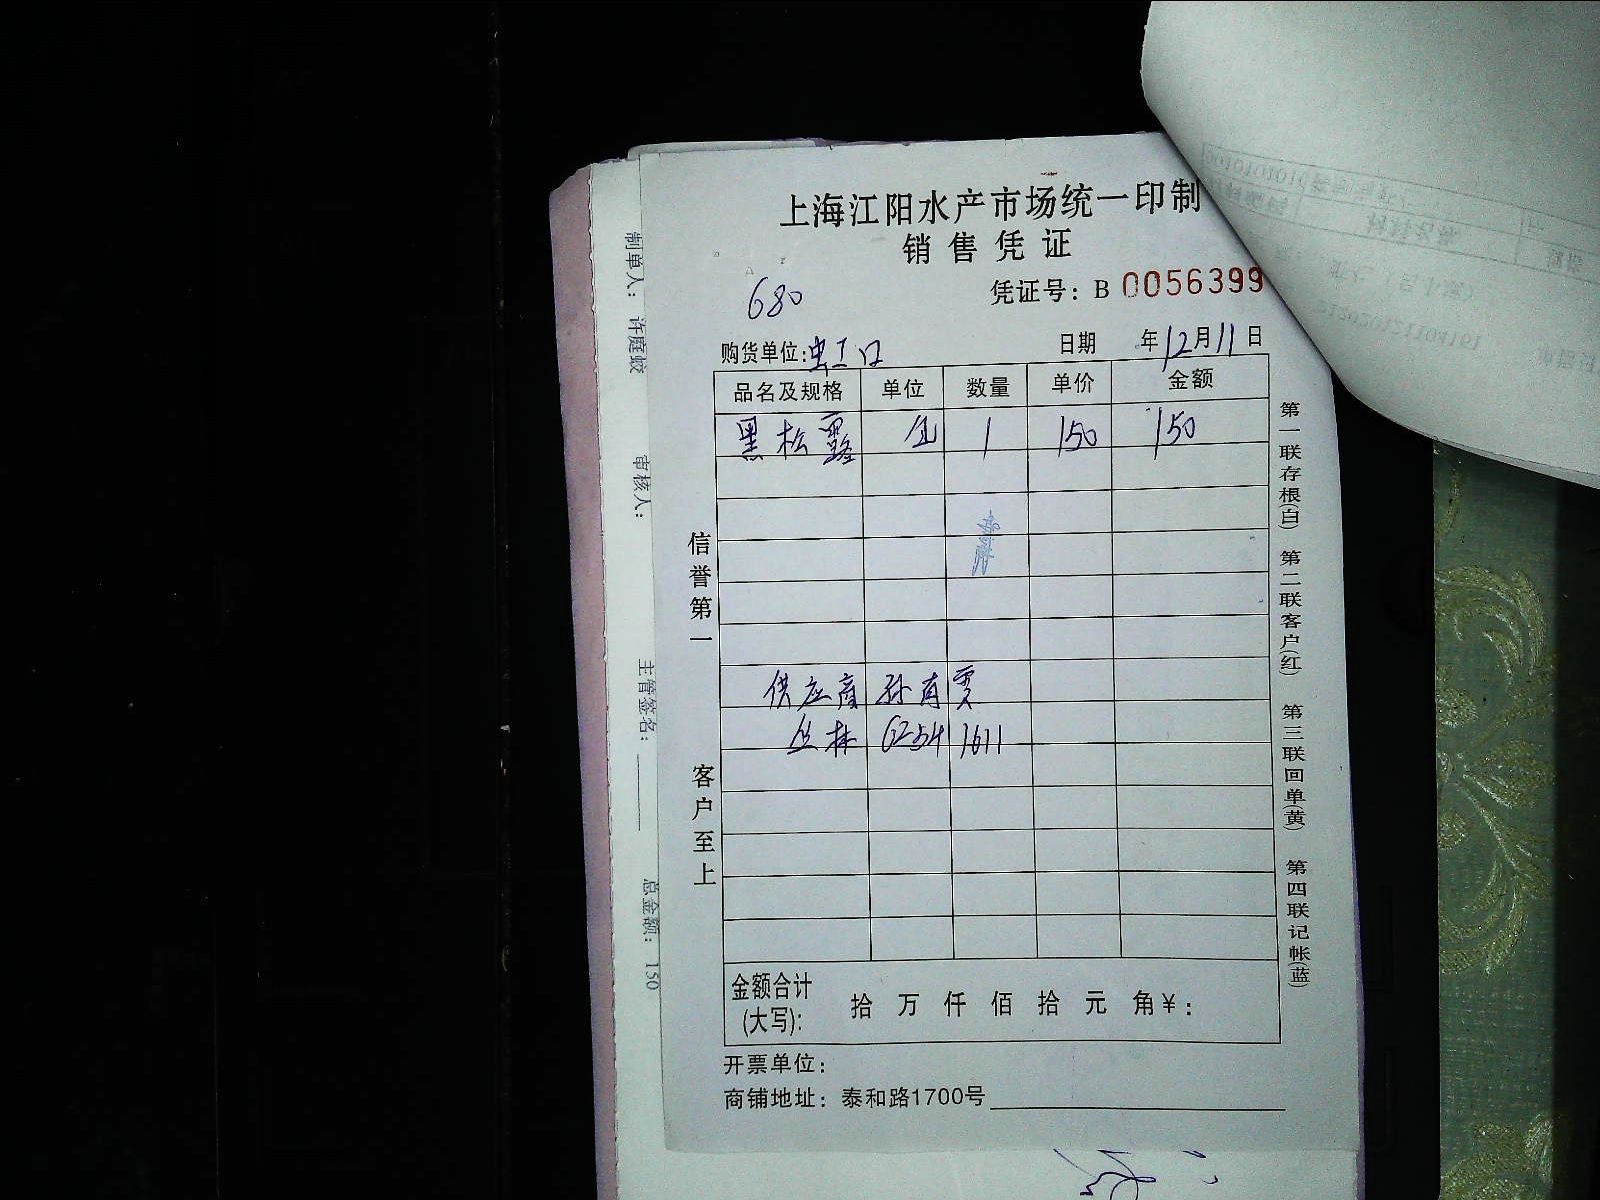 上海江阳水产市场统一印制
销售凭证
680
凭证号：B 0056399
购货单位：虹口 日期 年12月11日
品名及规格 单位 数量 单价 金额
黑松露 1 150 150
供应商 孙
丛林 62541611
金额合计 (大写)： 拾 万 仟 佰 拾 元 角 ¥：
开票单位：
商铺地址：泰和路1700号
信誉第一 客户至上
第一联存根(白) 第二联客户(红) 第三联回单(黄) 第四联记帐(蓝)
制单人：许庭蛟 审核人： 主管签名： 总金额：150